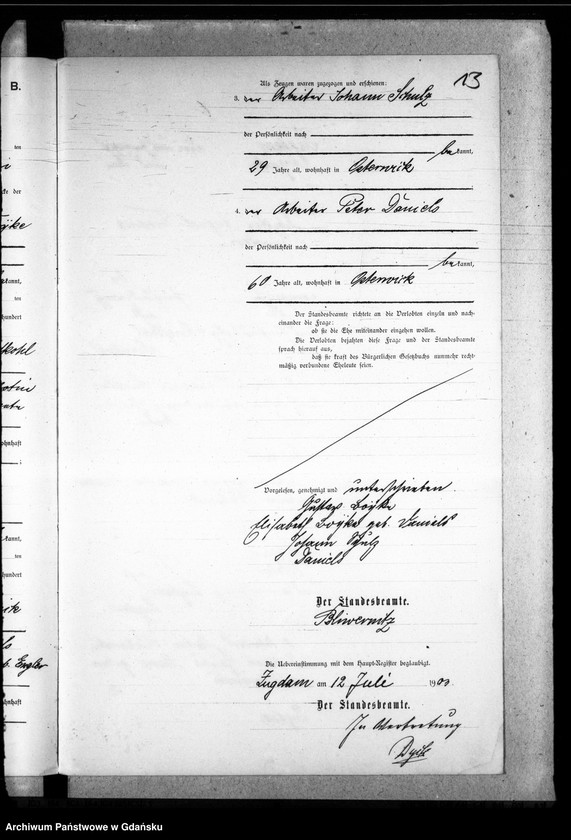 B.
13
Als Zeugen waren zugezogen und erschienen:
3. der Arbeiter Johann Schulz
der Persönlichkeit nach
be kannt,
29 Jahre alt, wohnhaft in Osterwick
4. der Arbeiter Peter Daniels
der Persönlichkeit nach
be kannt,
60 Jahre alt, wohnhaft in Osterwick
Der Standesbeamte richtete an die Verlobten einzeln und nach-
einander die Frage:
ob sie die Ehe miteinander eingehen wollen.
Die Verlobten bejahten diese Frage und der Standesbeamte
sprach hierauf aus,
daß sie kraft des Bürgerlichen Gesetzbuchs nunmehr recht-
mäßig verbundene Eheleute seien.
Vorgelesen, genehmigt und unterschrieben
Gustav Böÿke
Elisabeth Böÿke geb. Daniels
Johann Schulz
Daniels
Der Standesbeamte.
Bliwernitz
Die Uebereinstimmung mit dem Haupt-Register beglaubigt.
Zugdam am 12 Juli 1903
Der Standesbeamte.
In Vertretung
Archiwum Państwowe w Gdańsku